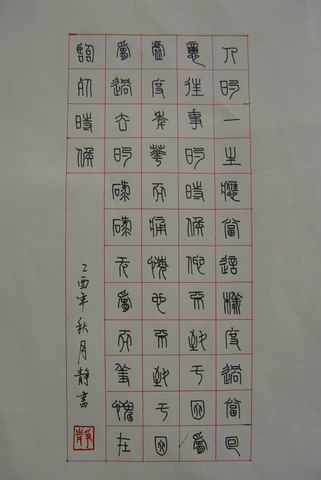 人的一生應當這樣度過當回
憶往事的時候他不致于因為
虛度年華而痛悔也不致于因
為過去的碌碌无為而羞愧在
臨死時候
乙酉年秋月靜書
靜